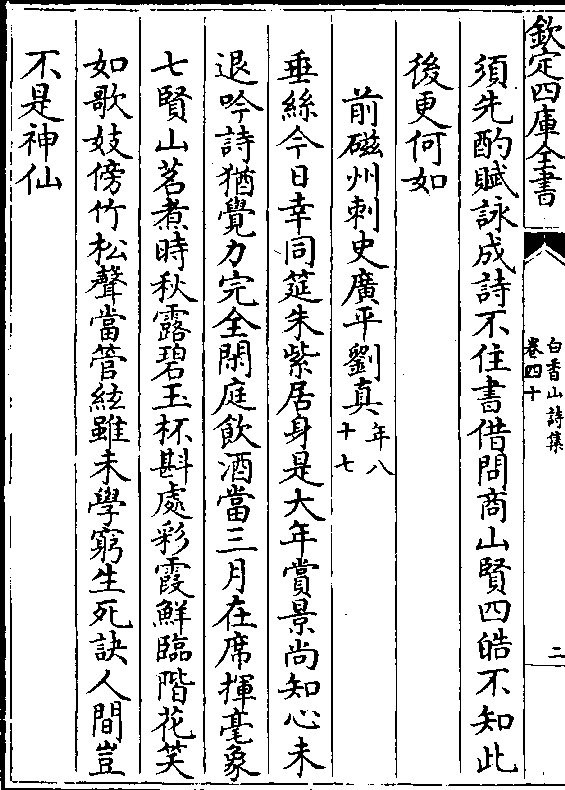 欽定四庫全書
白香山詩集
卷四十
二
須先酌賦詠成詩不住書借問商山賢四皓不知此
後更何如
前磁州刺史廣平劉真年八
十七
垂絲今日幸同筵朱紫居身是大年賞景尚知心未
退吟詩猶覺力完全閑庭飲酒當三月在席揮毫象
七賢山茗煮時秋露碧玉杯斟處彩霞鮮臨階花笑
如歌妓傍竹松聲當管絃雖未學窮生死訣人間豈
不是神仙